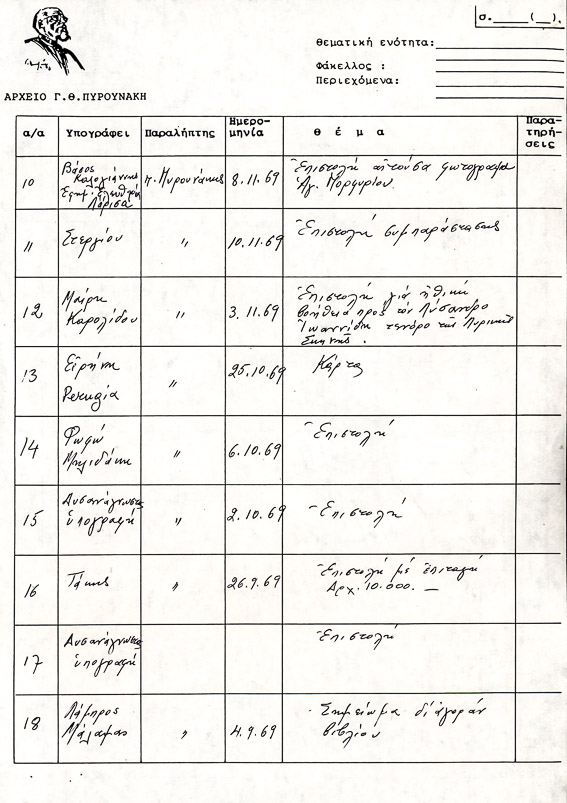 σ.____(__).
θεματική ενότητα:
Φάκελλος :
Περιεχόμενα:
ΑΡΧΕΙΟ Γ.Θ.ΠΥΡΟΥΝΑΚΗ
α/α Υπογράφει Παραλήπτης Ημερο-μηνία θέμα Παρα-τηρή-σεις
10 Βάσος
Καλογιάννης
Εφημ. Ελευθερία
Λάρισα
π. Πυρουνάκης 8.11.69 Ἐπιστολή αἰτοῦσα φωτογραφία
Ἁγ. Πορφυρίου.
11 Στεργίου " 10.11.69 Ἐπιστολή συμπαράστασης
12 Μαίρη
Καρολίδου
" 3.11.69 Ἐπιστολή γιά ἠθική
βοήθεια πρός τόν Λύσανδρο
Ἰωαννίδη τενόρο τῆς Λυρικῆς
Σκηνῆς.
13 Εἰρήνη
" 25.10.69 Κάρτα
14 Φωφώ
Μηλιδάκη
" 6.10.69 Ἐπιστολή
15 Δυσανάγνωστη
ὑπογραφή
" 2.10.69 Ἐπιστολή
16 Τάκης " 26.9.69 Ἐπιστολή μέ ἐπιταγή
Δρχ. 10.000. —
17 Δυσανάγνωστη
ὑπογραφή
Ἐπιστολή
18 Λάμπρος
Μάλαμας
" 4.9.69 Σημείωμα δι' ἀγοράν
βιβλίου